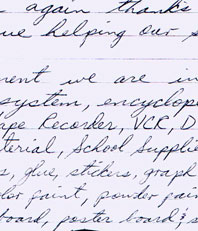 again thanks
ue helping our s
ment we are in
system, encyclope
ape Recorder, VCR, D
terial, School Supplie
s, glue, stickers, graph
lor paint, powder pain
board, poster board, s